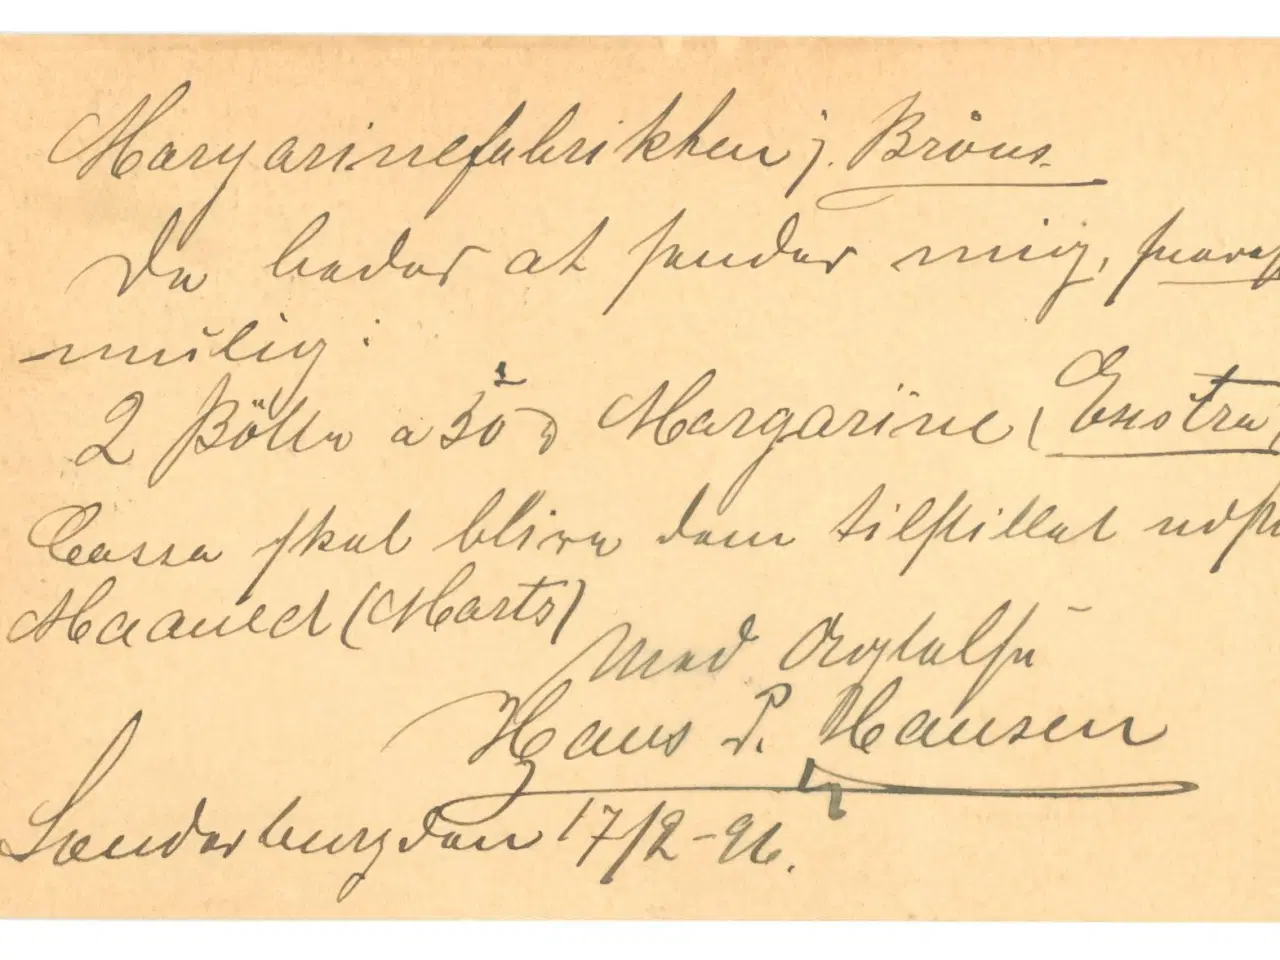 Margarinefabrikken j. Bröns.
De beder at sender mig, snarest
mulig:
2 Bötte a 50 ₰ Margarine (Exstra)
Cassa skal blive dem tilstillet
Maaned (Marts)
Med Agtelse
Hans P. Hansen
Sonderburg den 17/2-96.